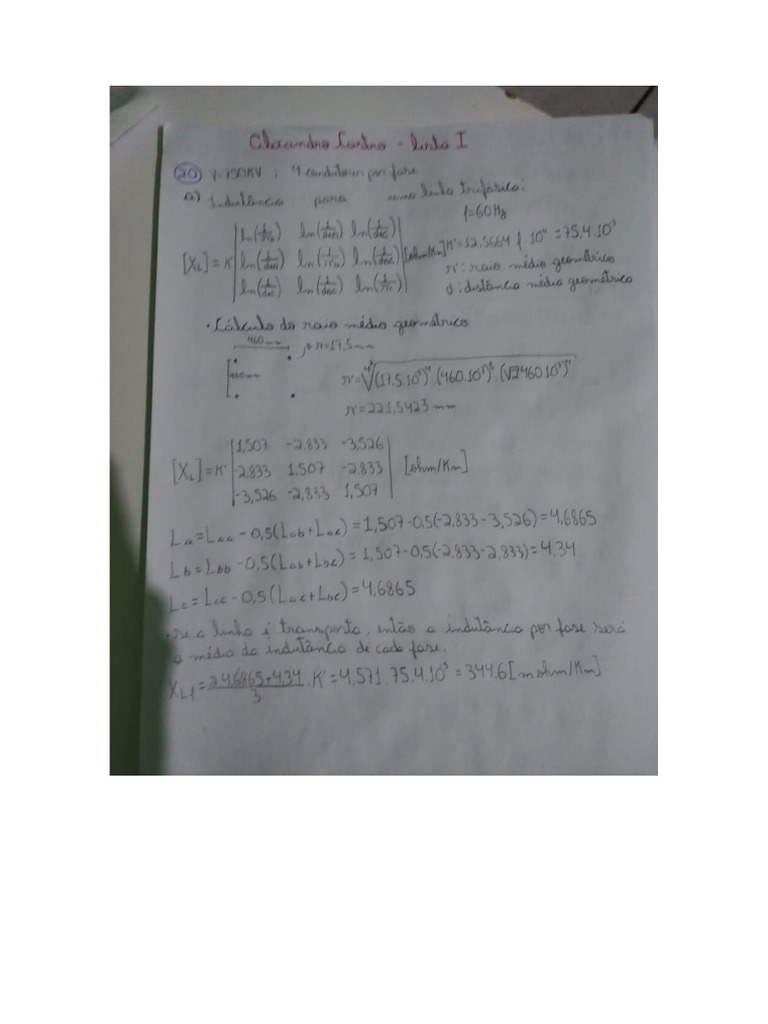 Alexandro Castro - Lista I
20 V=750KV ; 4 condutores por fase
a) Indutância para uma linha trifásica:
f=60Hz
[XL] = K' | ln(1/rm) ln(1/dAB) ln(1/dAC) |
| ln(1/dAB) ln(1/rm) ln(1/dBC) | [ohm/Km]
| ln(1/dAC) ln(1/dBC) ln(1/rm) |
K'=12,5664.f.10⁻⁴ = 75,4.10⁻³
r': raio médio geométrico
d: distância média geométrica
• Cálculo do raio médio geométrico
460mm r=17,5mm
460mm
r'=221,5423 mm
[XL]=K' | 1,507 -2,833 -3,526 |
| -2,833 1,507 -2,833 | [ohm/Km]
| -3,526 -2,833 1,507 |
La=Laa - 0,5(Lab+Lac) = 1,507-0,5(-2,833-3,526)=4,6865
Lb=Lbb -0,5(Lab+Lbc) = 1,507-0,5(-2,833-2,833)=4,34
Lc=Lcc - 0,5(Lac+Lbc)=4,6865
• se a linha é transposta, então a indutância por fase será
a média da indutância de cada fase.
XL1 = (2.4,6865+4,34)/3 . K' = 4,571.75,4.10⁻³ = 344,6 [m ohm/Km]